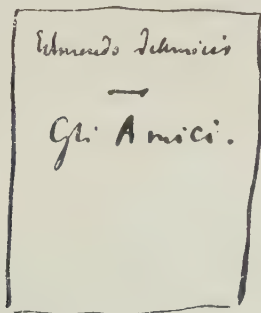 Edmondo DeAmicis
Gli Amici.